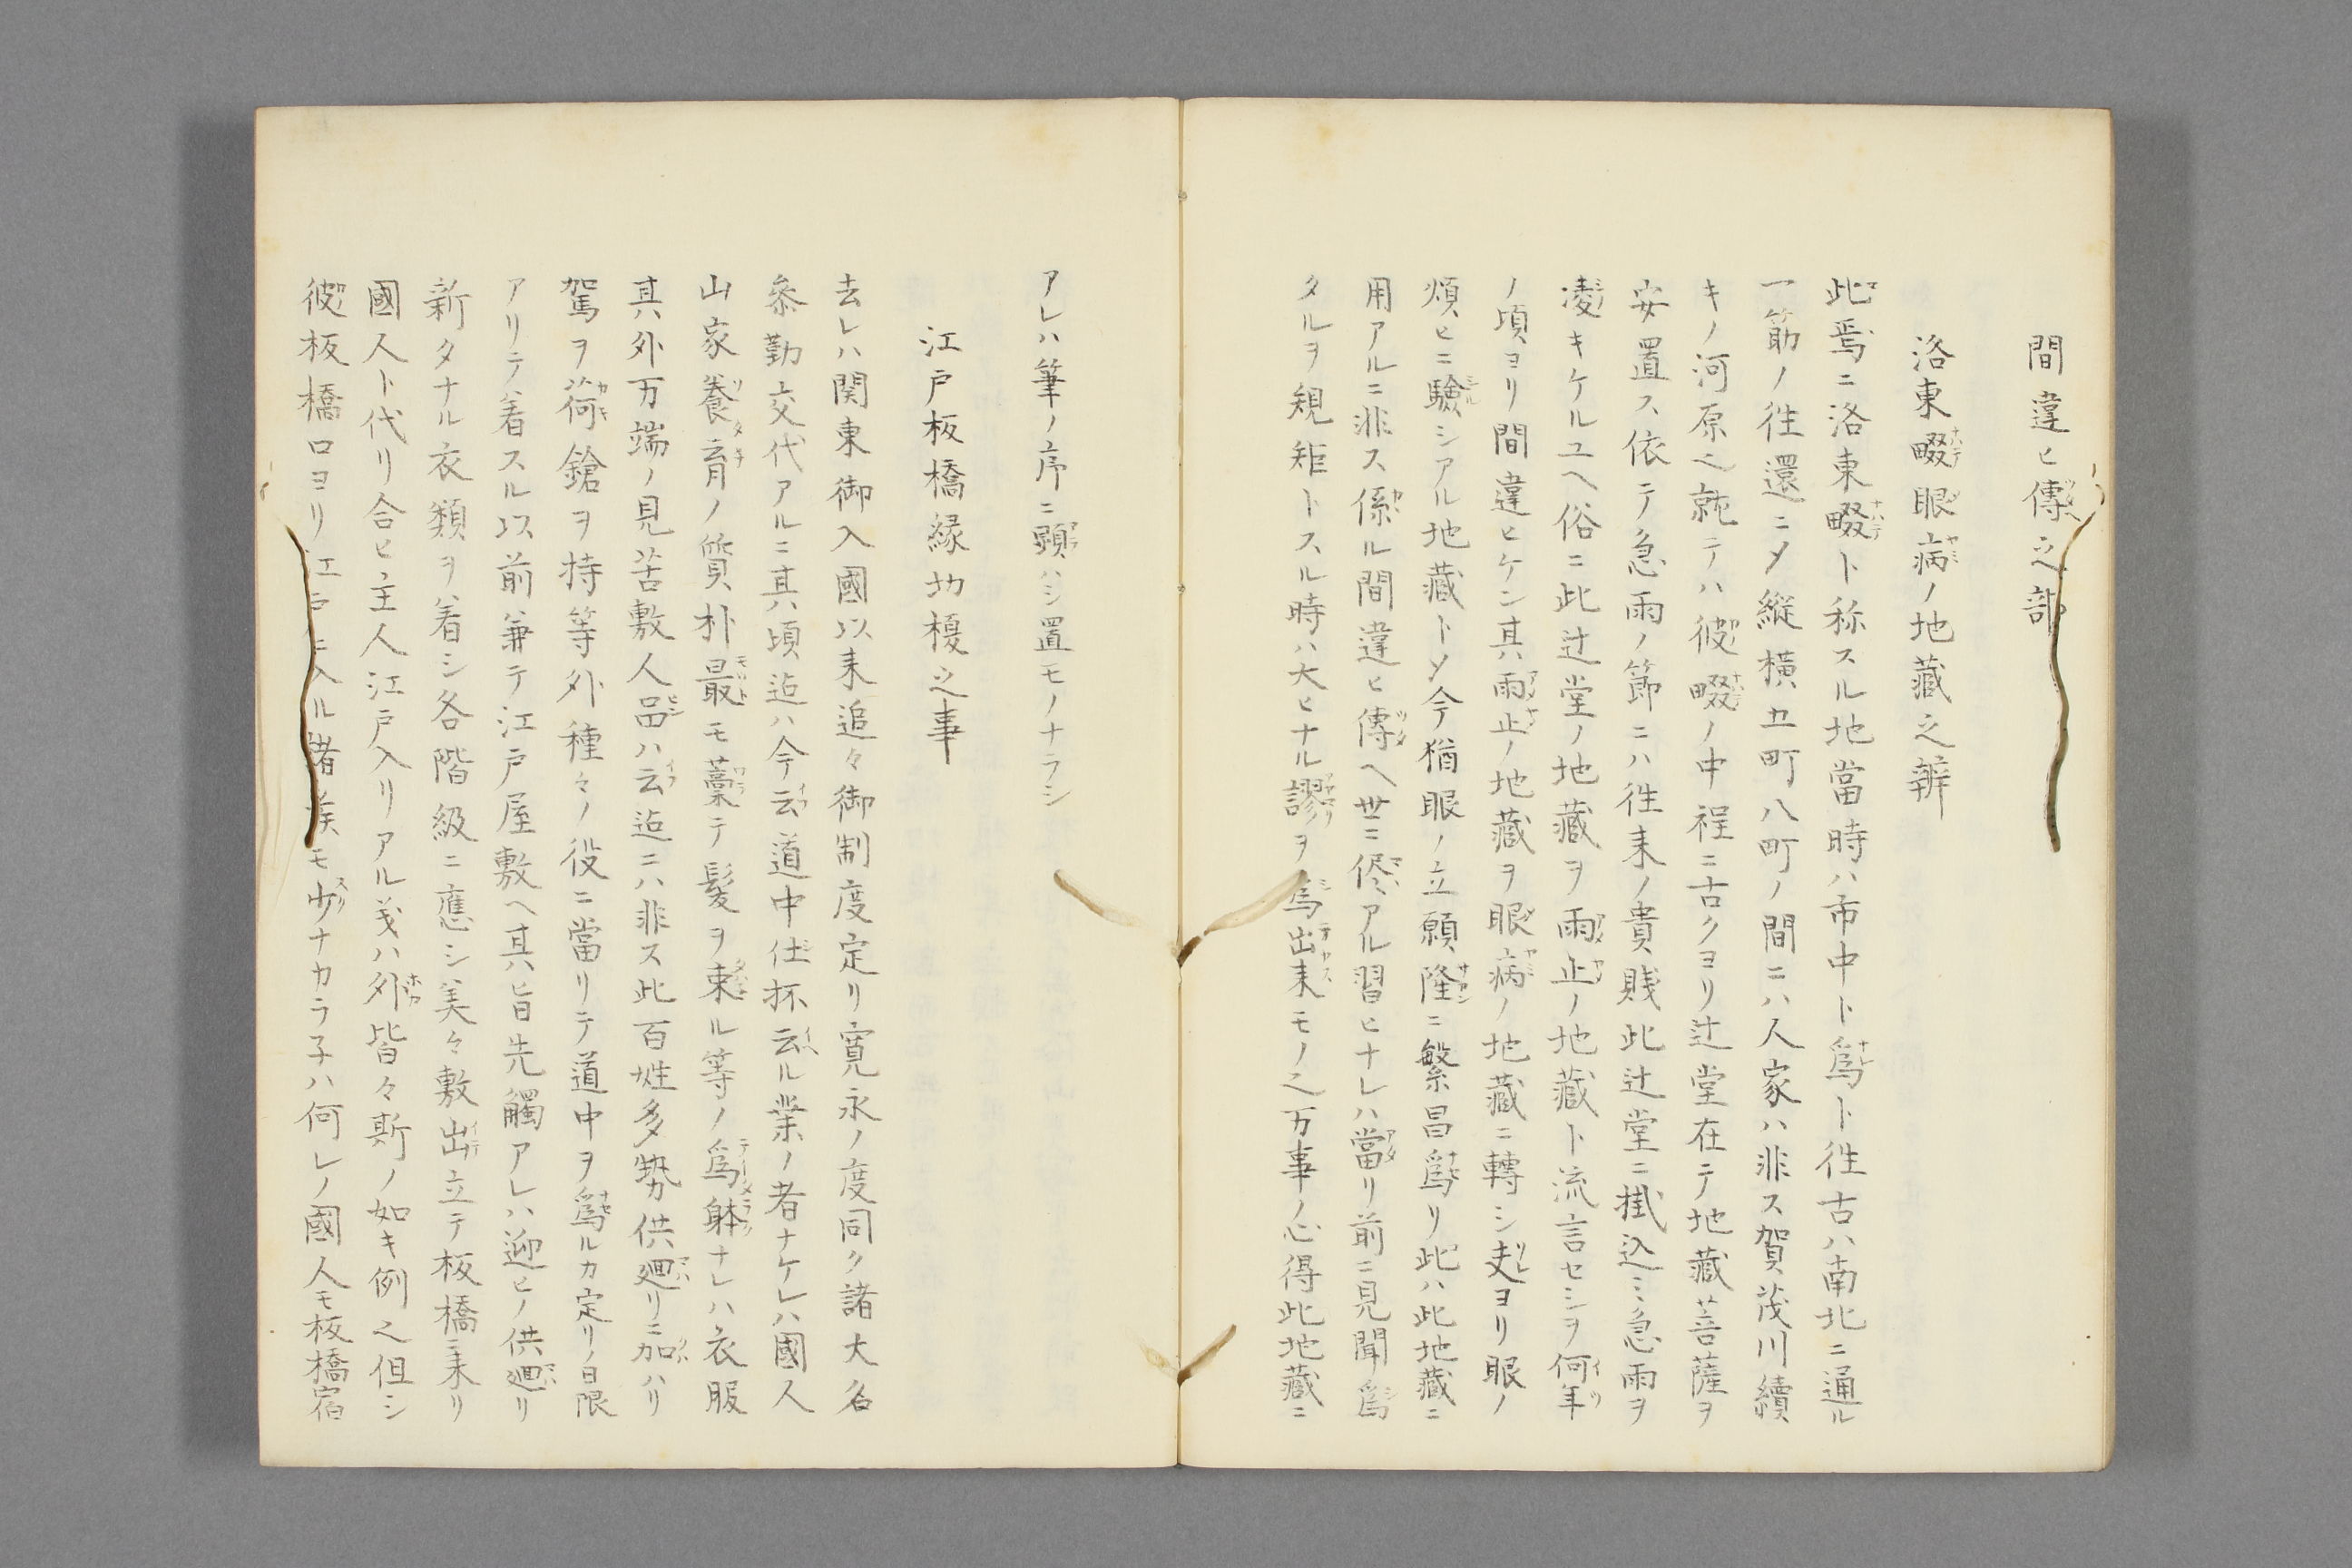 間違ヒ傳之部
洛東畷眼病ノ地藏之辨
此焉ニ洛東畷ト称スル地當時ハ市中ト爲ト徃古ハ南北ニ通ル
一筋ノ徃還ニメ縦横五町八町ノ間ニハ人家ハ非ス賀茂川續
キノ河原之就テハ彼畷ノ中程ニ古クヨリ辻堂在テ地藏菩薩ヲ
安置ス依テ急雨ノ節ニハ徃来ノ貴賎此辻堂ニ掛込ミ急雨ヲ
凌キケルユヘ俗ニ此辻堂ノ地藏ヲ雨止ノ地藏ト流言セシヲ何年
ノ頃ヨリ間違ヒケン其雨止ノ地藏ヲ眼病ノ地藏ニ轉シ夫ヨリ眼ノ
煩ヒニ驗シアル地藏トメ今猶眼ノ立願隆ニ繁昌爲リ此ハ此地藏ニ
用アルニ非ス係ル間違ヒ傳ヘ世ニ侭アル習ヒナレハ當リ前ニ見聞爲
タルヲ規矩トスル時ハ大ヒナル謬ヲ爲出来モノ之万事ノ心得此地藏ニ
アレハ筆ノ序ニ顕ハシ置モノナラシ
江戸板橋縁切榎之事
去レハ関東御入國以来追々御制度定リ寛永ノ度同ク諸大名
叅勤交代アルニ其頃迠ハ今云道中仕抔云ル業ノ者ナケレハ國人
山家養育ノ質朴最モ藁テ髪ヲ束ル等ノ爲躰ナレハ衣服
其外万端ノ見苦敷人品ハ云迠ニハ非ス此百姓多勢供廻リニ加ハリ
駕ヲ荷鎗ヲ持等外種々ノ役ニ當リテ道中ヲ爲ルカ定リノ日限
アリテ着スル以前兼テ江戸屋敷ヘ其旨先觸アレハ迎ヒノ供廻リ
新タナル衣類ヲ着シ各階級ニ應シ美々敷出立テ板橋ニ来リ
國人ト代リ合ヒ主人江戸入リアル義ハ外皆々斯ノ如キ例之但シ
彼板橋口ヨリ江戸ニ入ル諸侯モ少ナカラ子ハ何レノ國人モ板橋宿